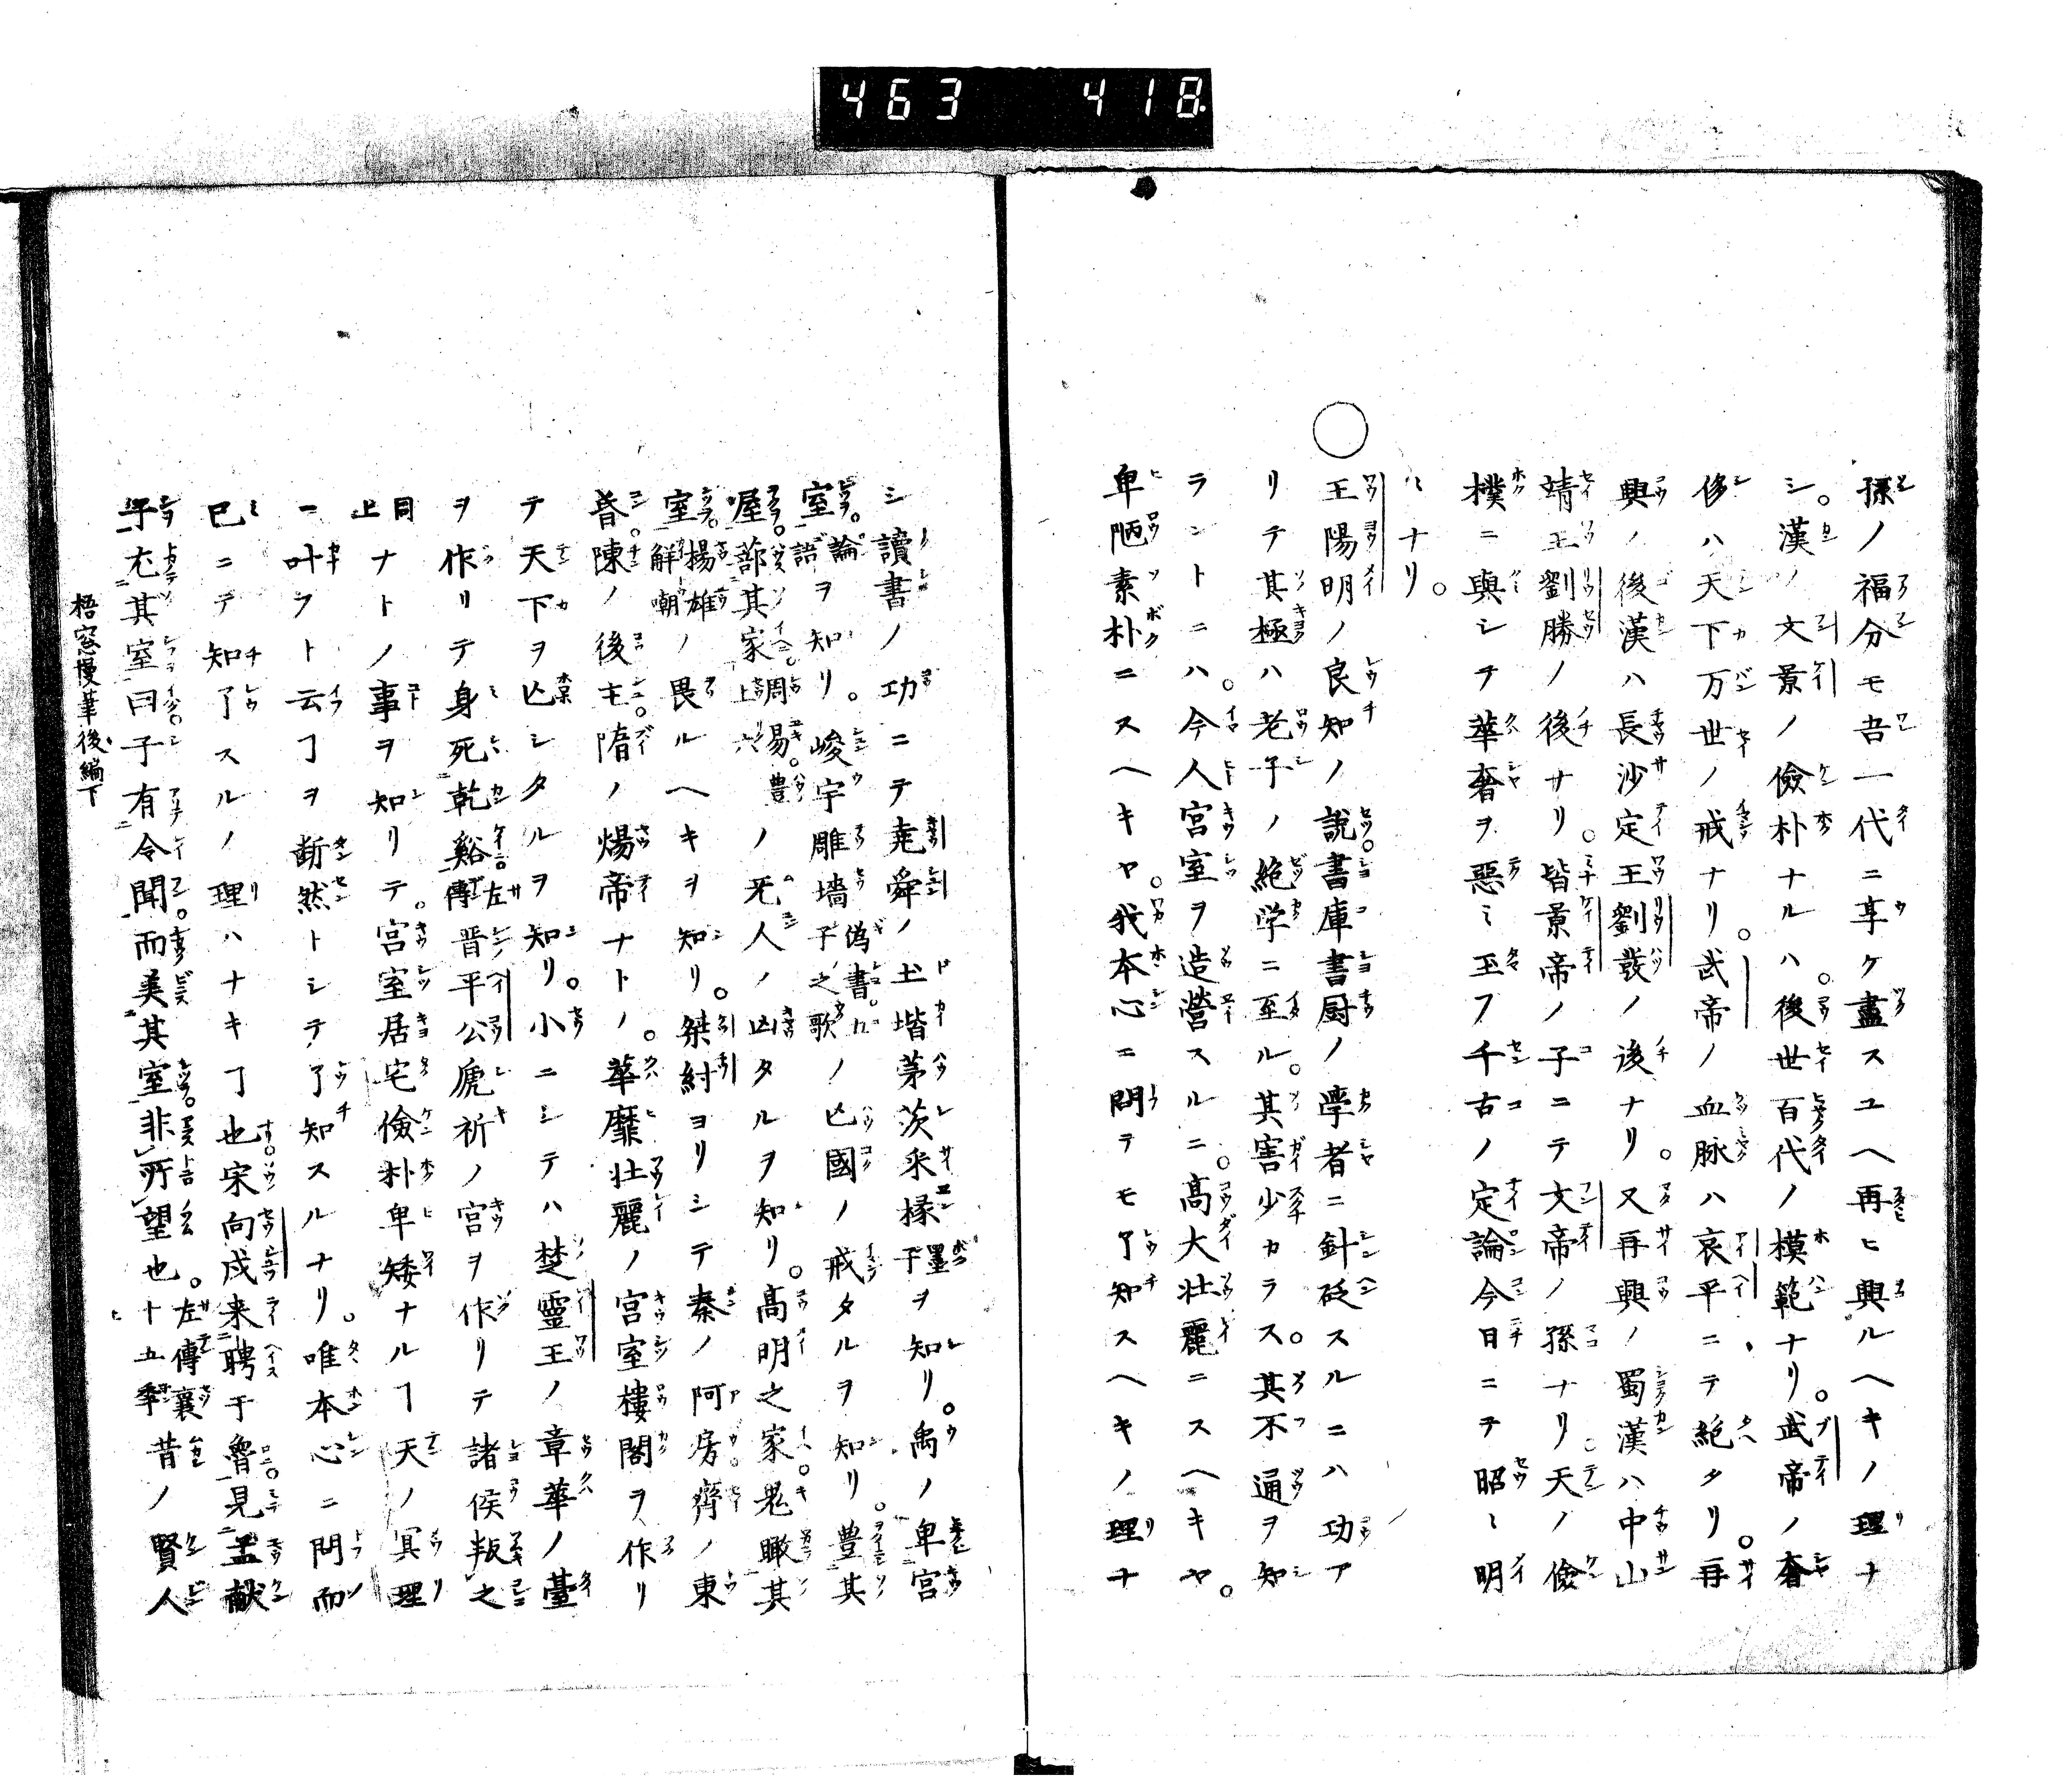 463 418
孫ノ福分モ吾一代ニ享ケ盡スユヘ再ヒ興ルヘキノ理ナ
シ。漢ノ文景ノ儉朴ナルハ。後世百代ノ模範ナリ。武帝ノ奢
侈ハ天下万世ノ戒ナリ。武帝ノ血脉ハ哀平ニテ絶タリ。再
興ノ後漢ハ長沙定王劉發ノ後ナリ。又再興ノ蜀漢ハ中山
靖王劉勝ノ後ナリ。皆景帝ノ子ニテ文帝ノ孫ナリ。天ノ儉
樸ニ與シテ華奢ヲ惡ミ玉フ千古ノ定論今日ニテ昭〻明
〻ナリ。
○王陽明ノ良知ノ説。書庫書厨ノ學者ニ針砭スルニハ功ア
リテ其極ハ老子ノ絶学ニ至ル。其害少カラス。其不通ヲ知
ラントニハ。今人宮室ヲ造營スルニ。髙大壮麗ニスヘキヤ。
卑陋素朴ニスヘキヤ。我本心ニ問テモ了知スヘキノ理ナ
シ讀書ノ功ニテ堯舜ノ土堦茅茨釆椽〈墨子〉ヲ知リ。禹ノ卑宮
室。〈論語〉ヲ知リ。峻宇雕墻〈偽書。五子之歌〉ノ亡國ノ戒タルヲ知リ。豊其
屋。蔀其家〈周易。豊上六〉ノ旡人ノ凶タルヲ知リ。髙明之家。鬼瞰其
室。〈楊雄解嘲〉ノ畏ルヘキヲ知リ。桀紂ヨリシテ秦ノ阿房。齊ノ東
昏。陳ノ後主。隋ノ煬帝ナトノ。華靡壮麗ノ宮室樓閣ヲ作リ
テ天下ヲ亡シタルヲ知リ。小ニシテハ楚靈王ノ章華ノ臺
ヲ作リテ身死乾谿。〈左傳〉晋平公虒祈ノ宮ヲ作リテ諸侯叛之
〈同上〉ナトノ事ヲ知リテ。宮室居宅儉朴卑矮ナルヿ天ノ冥理
ニ叶ヲト云ヿヲ断然トシテ了知スルナリ。唯本心ニ問而
巳ニテ知了スルノ理ハナキヿ也。宋向戍来聘于魯。見孟獻
子。尤其室曰。子有令聞。而美其室。非所望也。〈左傳襄十五年〉昔ノ賢人
梧窓慢筆後編下